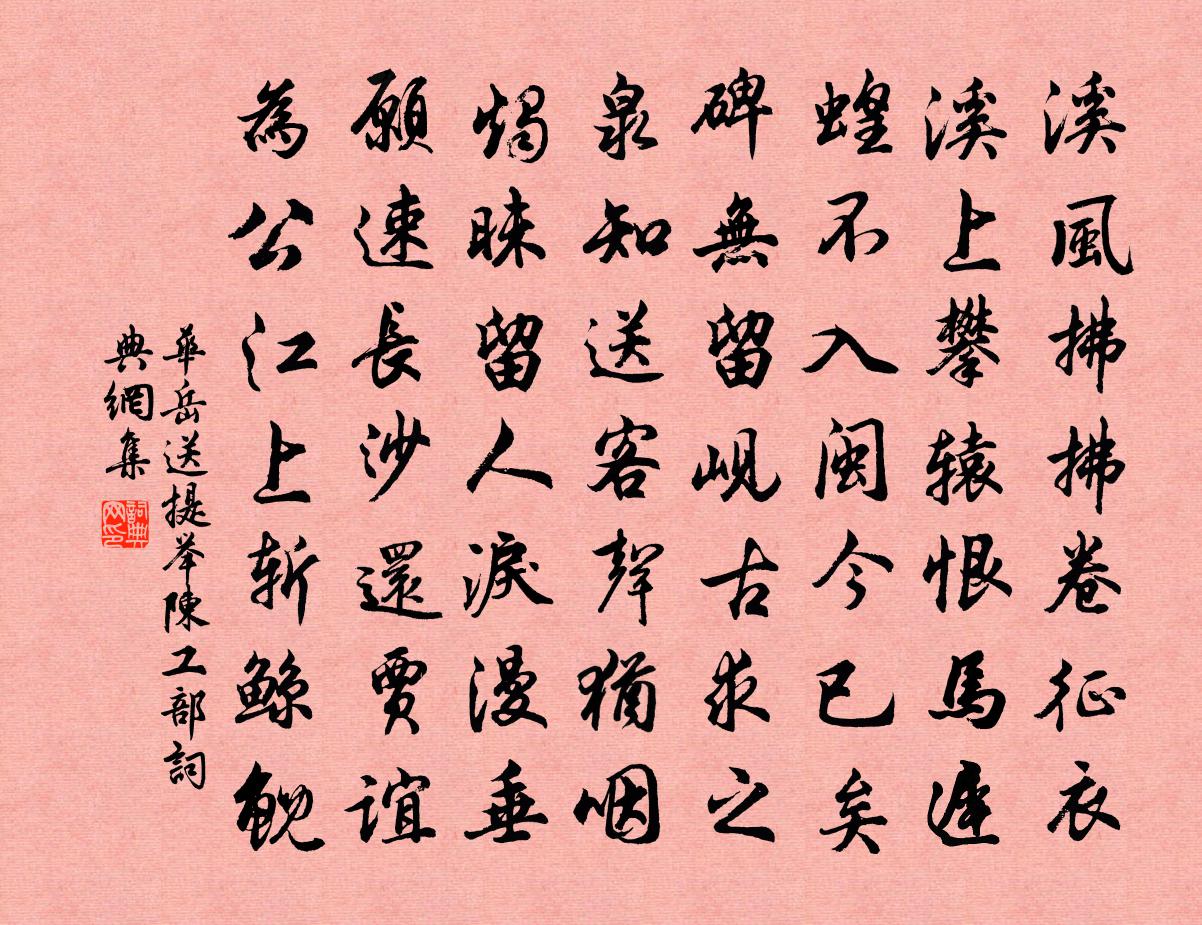 溪風拂拂卷征衣
溪上攀辕恨馬遲
蝗不入閩今已矣
碑無留峴古求之
泉知送客聲猶咽
燭昧留人淚漫垂
願速長沙還賈誼
為公江上斬鯨鯢
華岳送提举陳工部詞
典網集
詞典网印